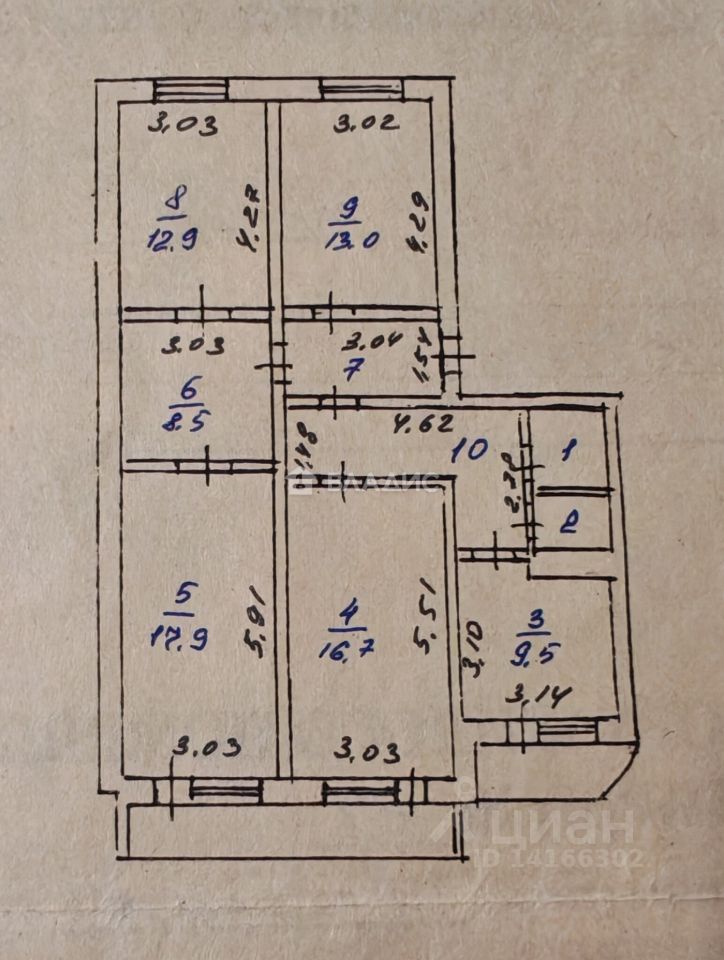 3.03
3.02
8
12.9
4.27
9
13.0
4.29
3.03
3.04
7
1.54
6
8.5
4.62
10
1
1.48
2.30
2
ВЛАДИС
5
17.9
5.91
4
16.7
5.51
3.10
3
9.5
3.14
3.03
3.03
циан
ID 14166302